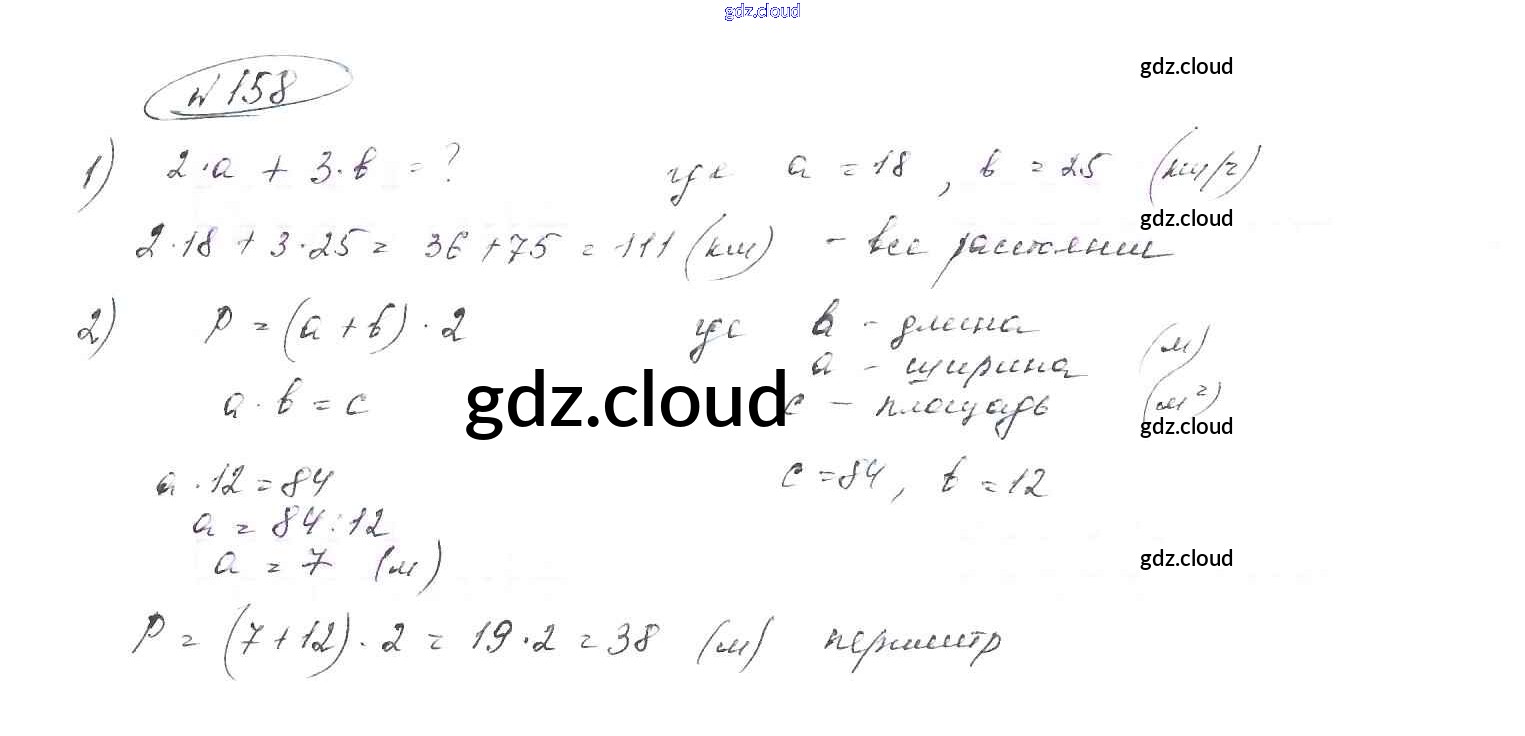 gdz.cloud
gdz.cloud
N 158
1) 2·a + 3·b = ? где a = 18, b = 25 (км/ч)
gdz.cloud
2·18 + 3·25 = 36 + 75 = 111 (км) - все расстояние
2) P = (a + b) · 2 где b - длина
a - ширина (м)
gdz.cloud
a · b = c c - площадь (м²)
gdz.cloud
a · 12 = 84 c = 84, b = 12
a = 84 : 12
a = 7 (м)
gdz.cloud
P = (7 + 12) · 2 = 19 · 2 = 38 (м) периметр